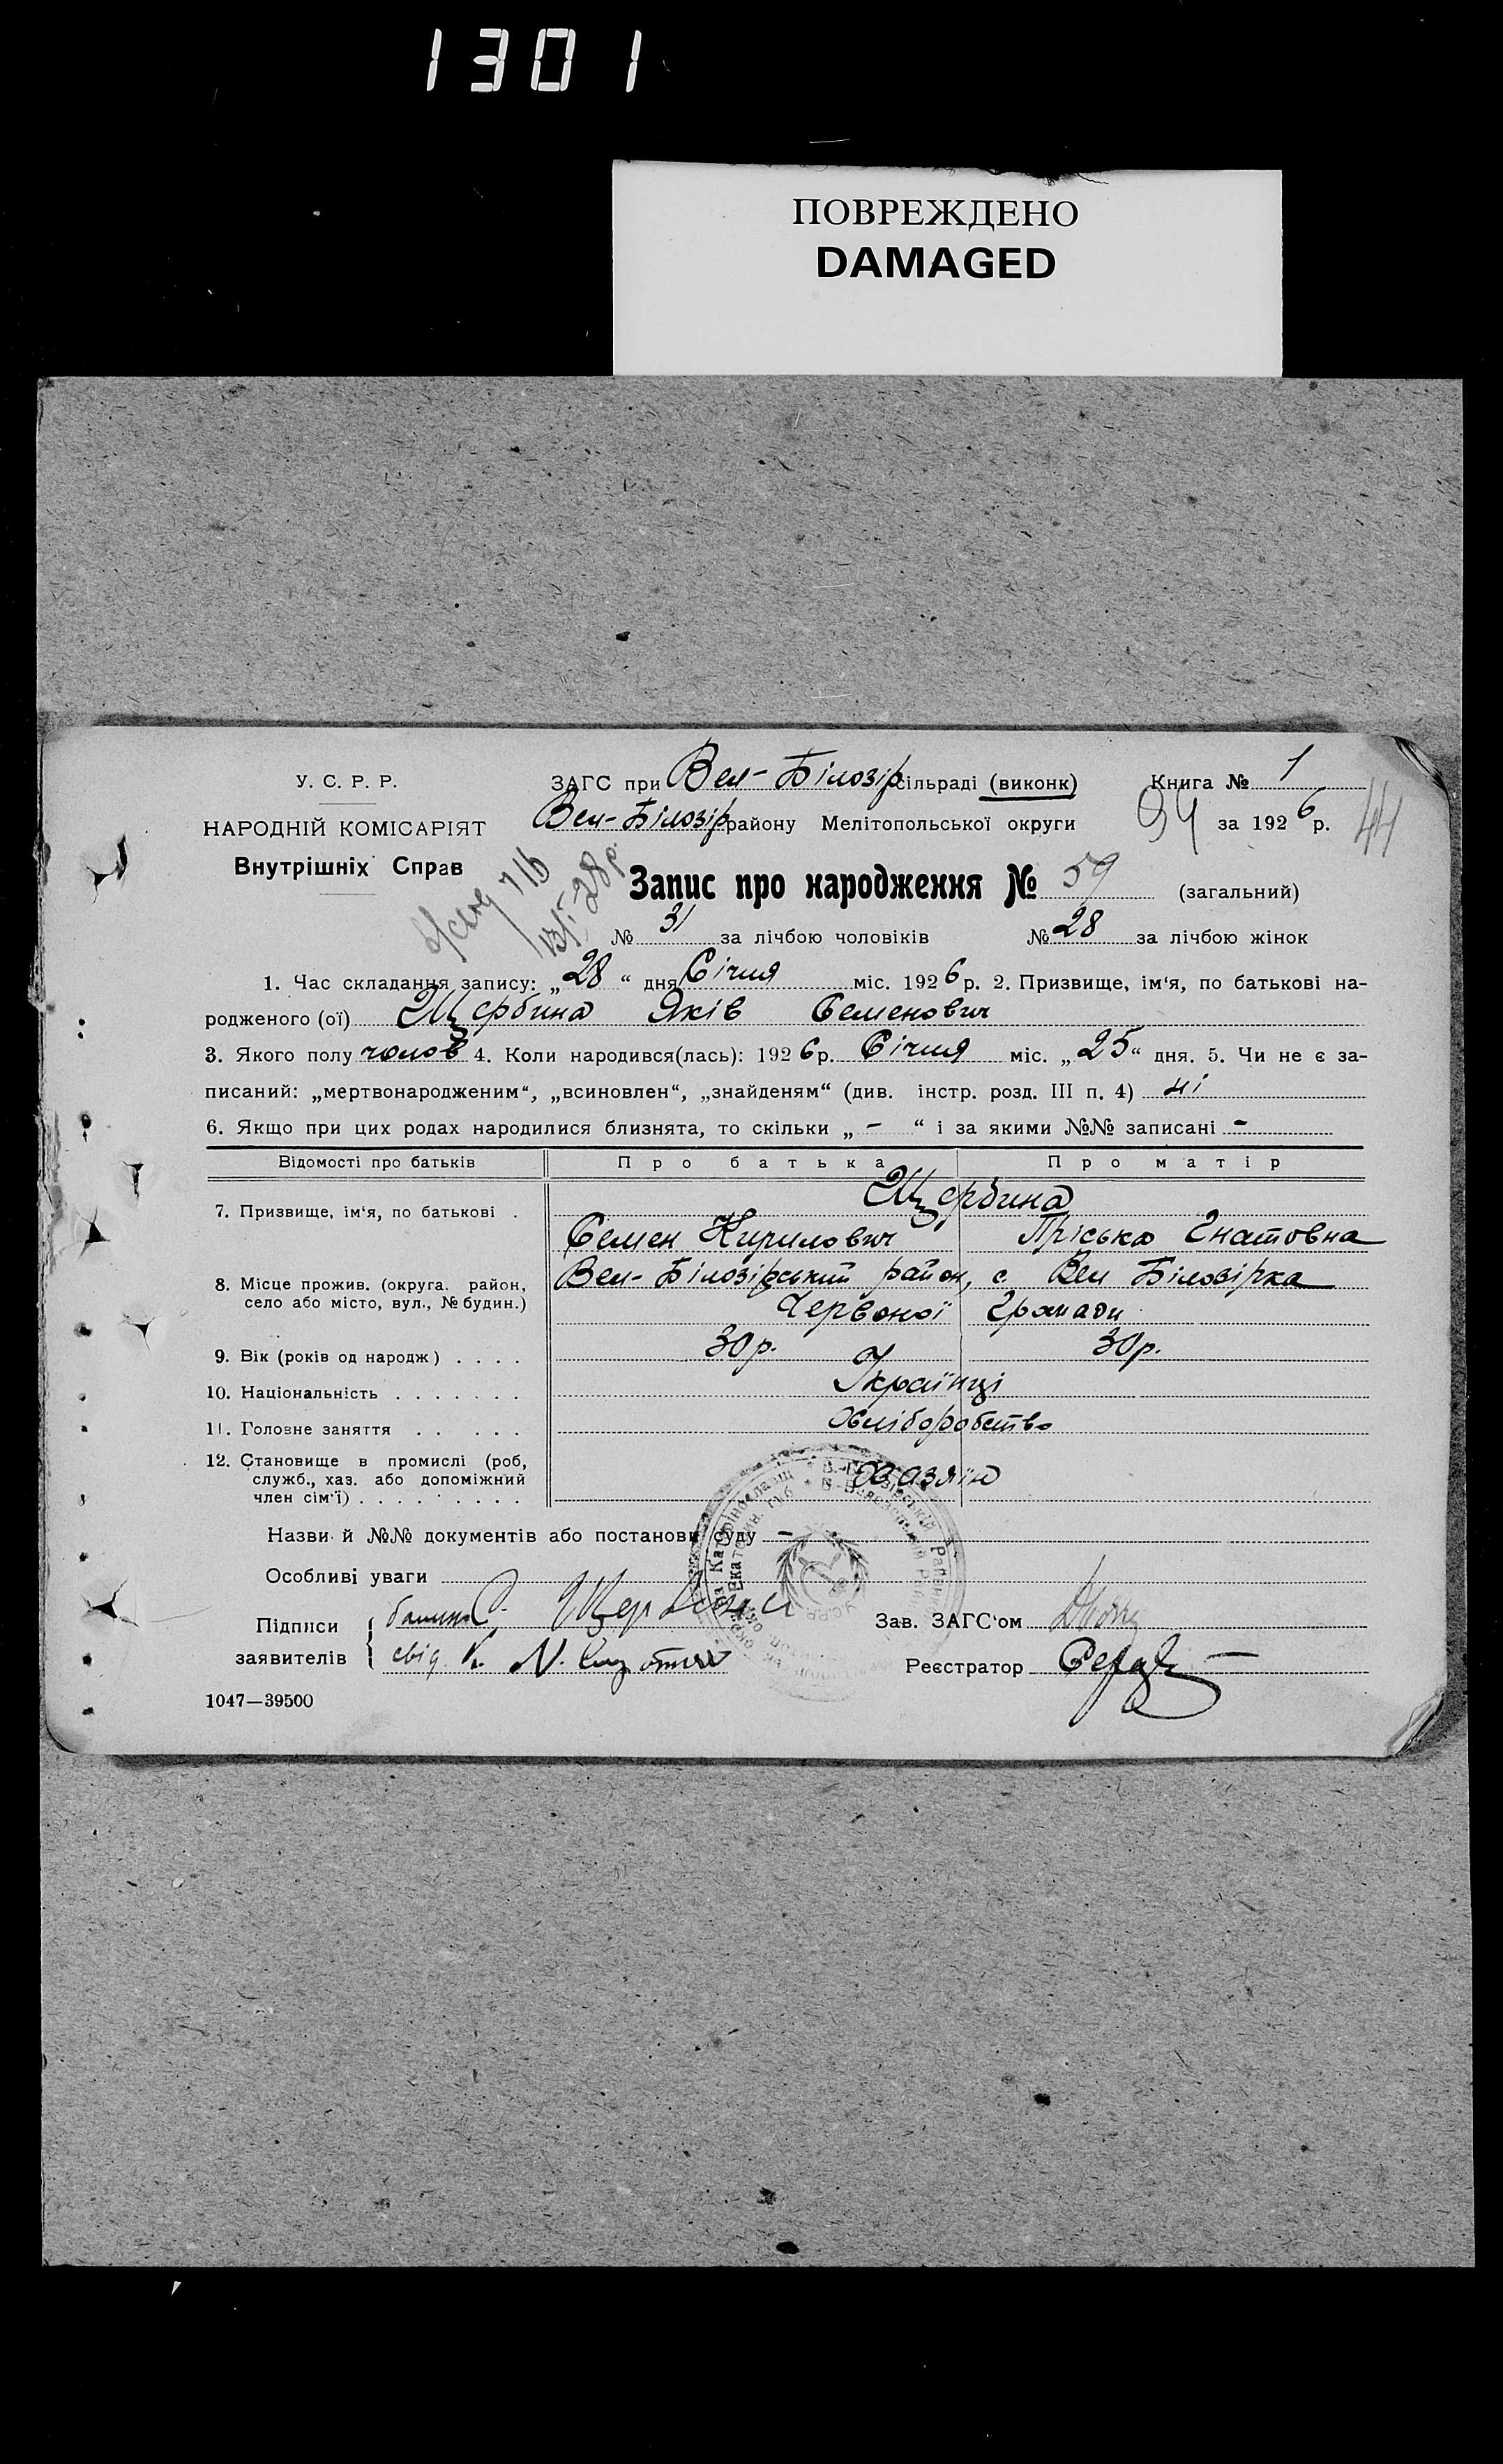 1301
ПОВРЕЖДЕНО
DAMAGED
У. С. Р. Р.
НАРОДНІЙ КОМІСАРІЯТ
Внутрішніх Справ
ЗАГС при Вел-Білозір сільраді (виконк)
Вел-Білозір району Мелітопольської округи
Книга № 1
94 за 1926 р.
44
Запис про народження № 59 (загальний)
№ 31 за лічбою чоловіків № 28 за лічбою жінок
1. Час складання запису: „28“ дня Січня міс. 1926 р. 2. Призвище, ім'я, по батькові на-
родженого (ої) Щербина Яків Семенович
3. Якого полу чолов 4. Коли народився(лась): 1926 р. Січня міс. „25“ дня. 5. Чи не є за-
писаний: „мертвонародженим“, „всиновлен“, „знайденям“ (див. інстр. розд. III п. 4) ні
6. Якщо при цих родах народилися близнята, то скільки „ - “ і за якими №№ записані -
Відомості про батьків Про батька Про матір
7. Призвище, ім'я, по батькові . Щербина
Семен Кирилович Пріська Гнатовна
8. Місце прожив. (округа. район, село або місто, вул., № будин.) Вел-Білозірський район, с. Вел Білозірка
Червоної Громади
9. Вік (років од народж) . . . . 30 р. 30 р.
10. Національність . . . . . . . Українці
11. Головне заняття . . . . . Хліборобство
12. Становище в промислі (роб, служб., хаз. або допоміжний член сім'ї) . . . . . . . . . Хазяїн
Назви й №№ документів або постанови суду -
Особливі уваги
Підписи заявителів
С. Щербина
свід.
Зав. ЗАГС'ом
Реєстратор
1047—39500